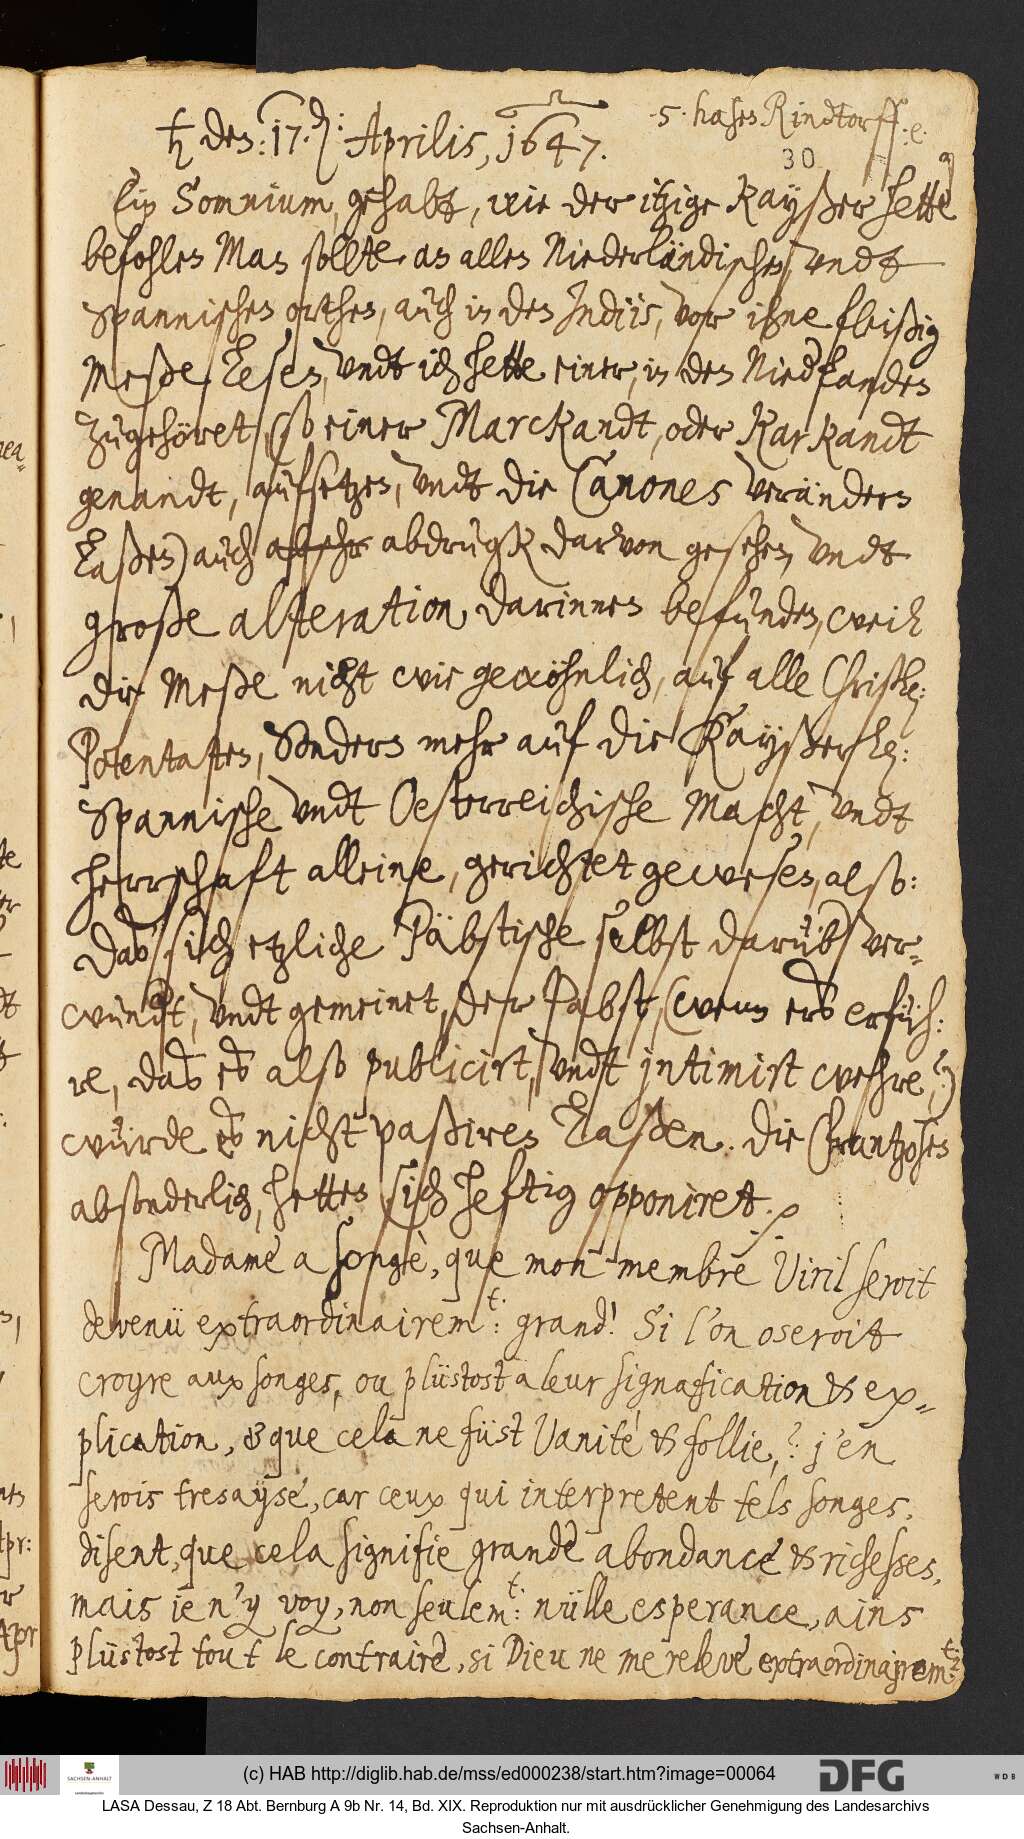 ♄ den: 17. d: Aprilis, 1647.
5. hasen Rindtorff.
30
Ein Somnium, gehabt, wie der itzige Kayßer hette
befohlen Man sollte an allen Niederländischen, undt
Spannischen orthen, auch in den Indiis, vor ihne fleißig
Meße Lesen, undt ich hette einer, in den Niederlanden
zugehöret, (so einer Marckandt, oder Karkandt
genandt, aufsetzen, undt die Canones verändern
Laßen) auch abschr abdrugk darvon gesehen, undt
große alteration, darinnen befunden, weil
die Meße nicht wie gewöhnlich, auf alle Christl:
Potentaten, Sondern mehr auf die Kayßerl:
Spannische undt Oesterreichische Macht, undt
herrschaft alleine, gerichtet gewesen, also:
daß sich etzliche Päbstische selbst darüber ver-
wundert, undt gemeinet, der Pabst, (wenn erß erfüh:
re, daß eß also publicirt, undt intimirt wehre,)
würde eß nicht paßiren Laßen. Die Frantzosen
absonderlich, hetten sich heftig opponiret.
Madame a songè, que mon membre Viril seroit
devenü extraordinairem.t: grand! Si l'on oseroit
croyre aux songes, ou plüstost a leur signification & ex-
plication, & que cela ne füst Vanitè & follie,? j'en
serois tresaysè, car ceux qui interpretent tels songes,
disent, que cela signifie grande abondance & richesses,
mais je n'y voy, non seulem.t: nülle esperance, ains
plüstost tout le contraire, si Dieu ne me releve extraordinairem.t:
(c) HAB http://diglib.hab.de/mss/ed000238/start.htm?image=00064
SACHSEN-ANHALT
DFG
WDB
LASA Dessau, Z 18 Abt. Bernburg A 9b Nr. 14, Bd. XIX. Reproduktion nur mit ausdrücklicher Genehmigung des Landesarchivs
Sachsen-Anhalt.